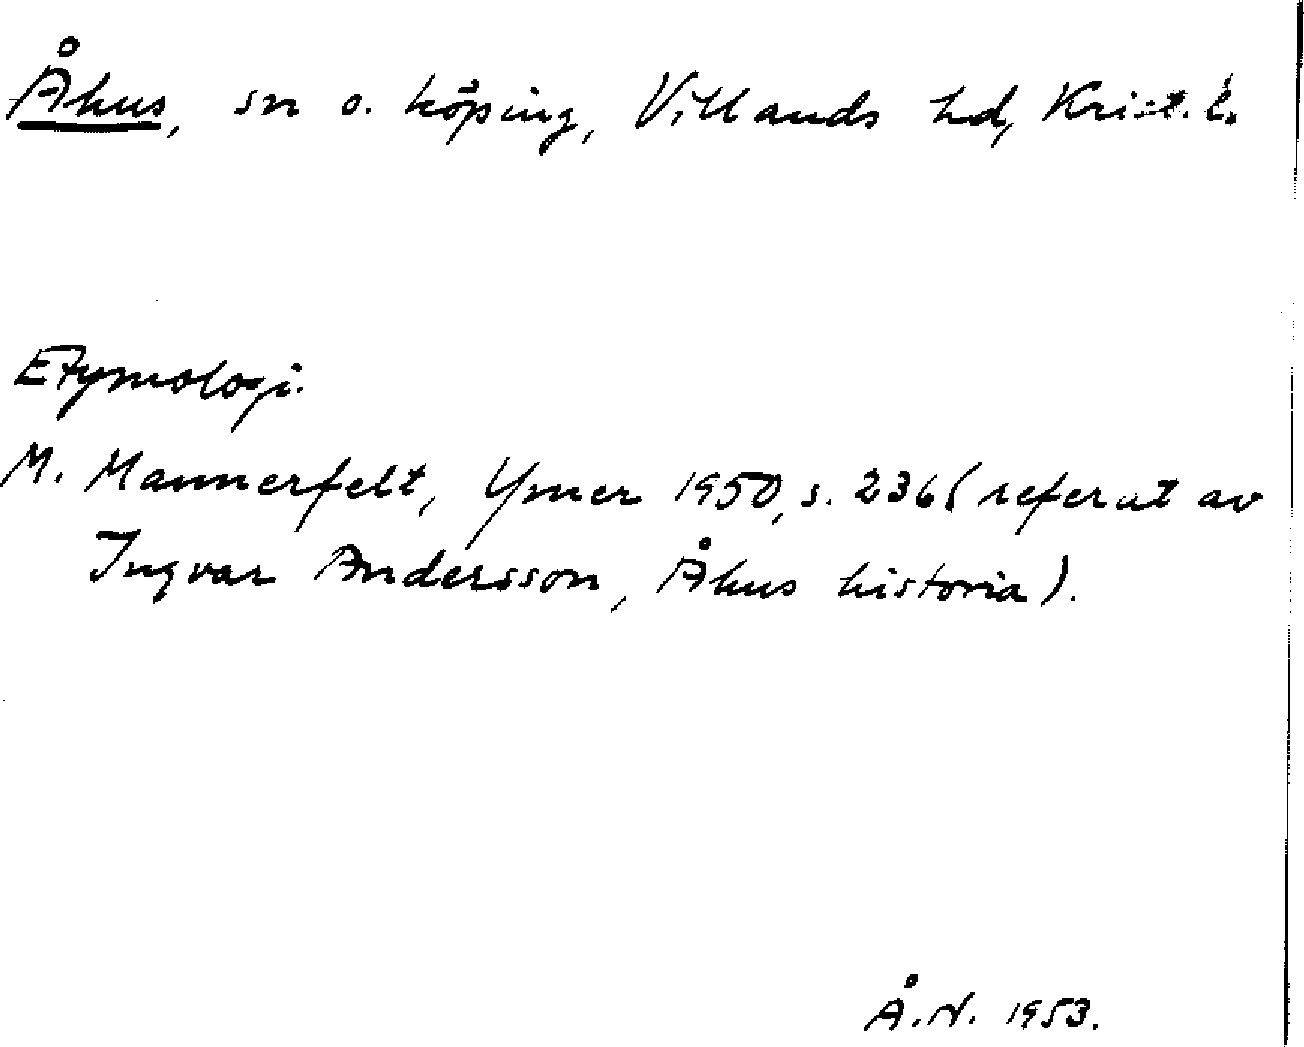 Åhus, sn o. köping, Villands hd, Krist. l.
Etymologi.
M. Mannerfelt, Ymer 1950, s. 236 (referat av
Ingvar Andersson, Åhus historia).
Å.N. 1953.